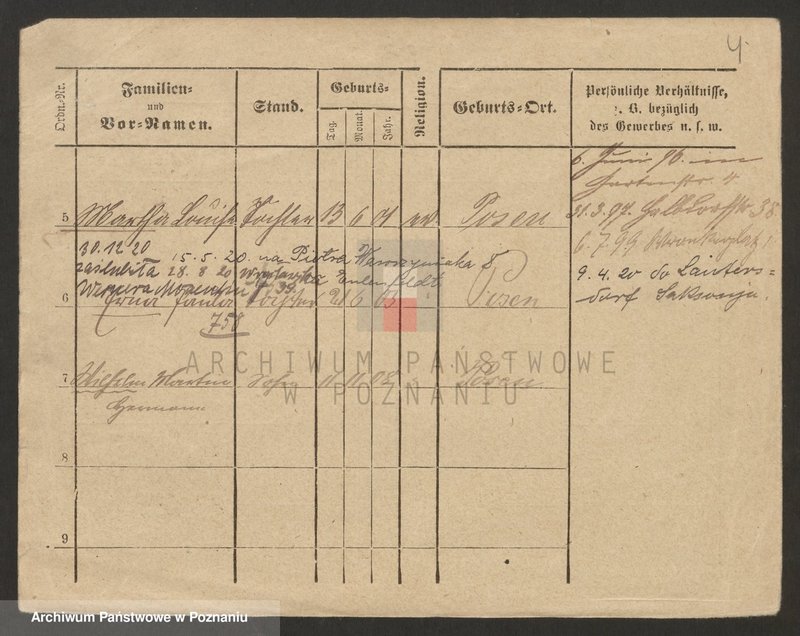 4.
Ordn.-Nr.
Familien-
und
Vor-Namen.
Stand.
Geburts-
Tag.
Monat.
Jahr.
Religion.
Geburts-Ort.
Persönliche Verhältnisse,
z. B. bezüglich
des Gewerbes u. s. w.
6. Juni 96. in
Gartenstr 4
5 Martha Louise Tochter 13 6 01 ev. Posen
31.3.97.
38
6.7.99
30.12.20 15.5.20. na Piotra Wawrzyniaka 5
zaślubiła 28.8.20 Wrocławska
35 Eulenfeldt
Wernera
9.4.20 do Lauters-
dorf Saksonja.
6 Erna Paula Tochter 21 6 03 Posen
758
7 Wilhelm Martin Sohn 11 11 02 Posen
Hermann
8
9
ARCHIWUM PAŃSTWOWE
W POZNANIU
Archiwum Państwowe w Poznaniu